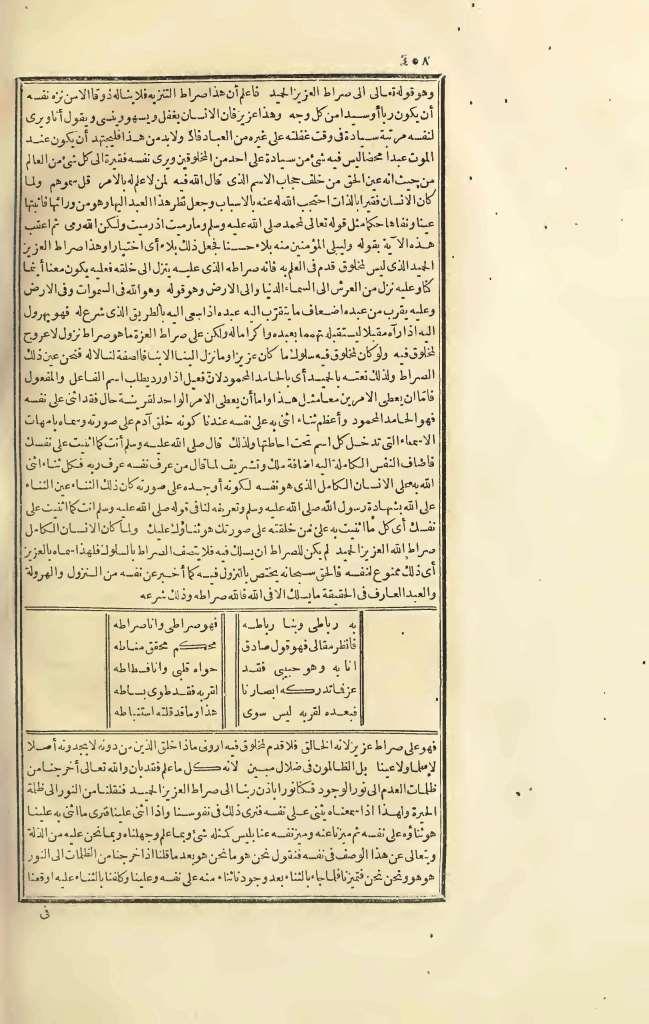 ٤٠٨
وهو قوله تعالى الى صراط العزيز الحميد فاعلم أن هذا صراط التنزيه فلا يناله ذوقا الا من نزه نفسه
أن يكون ربا أو سيدا من كل وجه وهذا عزيز فان الانسان يغفل ويسهو وينسى ويقول أنا ويرى
لنفسه مرتبة سيادة في وقت غفلته على غيره من العباد فاذ ولابد من هذا فليجتهد أن يكون عند
الموت عبدا محضا ليس فيه شئ من سيادة على احد من المخلوقين ويرى نفسه فقيرة الى كل شئ من العالم
من حيث انه عين الحق من خلف حجاب الاسم الذى قال الله فيه لمن لا علم له بالامر قل سموهم ولما
كان الانسان فقيرا بالذات احتجب الله له عنه بالاسباب وجعل نظر هذا العبد اليها وهو من ورائها فأثبتها
عينا ونفاها حكما مثل قوله تعالى لمحمد صلى الله عليه وسلم وما رميت اذ رميت ولكن الله رمى ثم اعقب
هذه الآية بقوله وليبلى المؤمنين منه بلاء حسنا فجعل ذلك بلاء أى اختبارا وهذا صراط العزيز
الحميد الذى ليس لمخلوق قدم في العلم به فانه صراطه الذى عليه ينزل الى خلقه فعليه يكون معنا أينما
كنا وعليه نزل من العرش الى السماء الدنيا والى الارض وهو قوله وهو الله في السموات وفى الارض
وعليه يقرب من عبده اضعاف ما يتقرب اليه عبده اذا سعى اليه بالطريق الذى شرع له فهو يهرول
اليه اذا رآه مقبلا ليستقبله تهمما بعبده واكراما له ولكن على صراط العزة ما هو صراط نزول لا عروج
لمخلوق فيه ولو كان لمخلوق فيه سلوك ما كان عزيزا وما نزل الينا الا بنا فالصفة لنا لا له فنحن عين ذلك
الصراط ولذلك نعته بالحميد أى بالحامد المحمود لان فعيل اذا ورد يطلب اسم الفاعل والمفعول
فاما ان يعطى الامرين معا مثل هذا واما أن يعطى الامر الواحد لقرينة حال فقد اثنى على نفسه
فهو الحامد المحمود وأعظم ثناء اثنى به على نفسه عندنا كونه خلق آدم على صورته وسماه بامهات
الاسماء التى تدخل كل اسم تحت احاطتها ولذلك قال صلى الله عليه وسلم أنت كما اثنيت على نفسك
فاضاف النفس الكاملة اليه اضافة ملك وتشريف لما قال من عرف نفسه عرف ربه فكل ثناء اثنى
الله به على الانسان الكامل الذى هو نفسه لكونه أوجده على صورته كان ذلك الثناء عين الثناء
على الله بشهادة رسول الله صلى الله عليه وسلم وتعريفه لنا في قوله صلى الله عليه وسلم أنت كما اثنيت على
نفسك أى كل ما اثنيت به على من خلقته على صورتك هو ثناؤك عليك ولما كان الانسان الكامل
صراط الله العزيز الحميد لم يكن للصراط ان يسلك فيه فلا يتصف الصراط بالسلوك فلهذا سماه بالعزيز
أى ذلك ممنوع لنفسه فالحق سبحانه يختص بالنزول فيه كما أخبر عن نفسه من النزول والهرولة
والعبد العارف في الحقيقة ما يسلك الا في الله فالله صراطه وذلك شرعه
به رباطى وبنا رباطه فهو صراطى وانا صراطه
فانظر مقالى فهو قول صادق محكم محقق مناطه
انا به وهو حبيبى فقد حواه قلبى وانا
عز فما تدركه ابصارنا لقربه فقد طوى بساطه
فبعده لقربه ليس سوى هذا وما قد قلته استنباطه
فهو على صراط عزيز لانه الخالق فلا قدم لمخلوق فيه ارونى ماذا خلق الذين من دونه لا يجدونه أصلا
لا علما ولا عينا بل الظالمون فى ضلال مبين لانه كل ما علم فقد بان والله تعالى أخرجنا من
ظلمات العدم الى نور الوجود فكنا نورا باذن ربنا الى صراط العزيز الحميد فنقلنا من النور الى ظلمة
الحيرة ولهذا اذا سمعناه يثنى على نفسه فنرى ذلك في نفوسنا واذا اثنى علينا فنرى ما اثنى به علينا
هو ثناؤه على نفسه ثم ميزنا عنه وميز نفسه عنا بليس كمثله شئ وبما علم وجهلناه وبما نحن عليه من الذلة
وتعالى عن هذا الوصف في نفسه فنقول نحن هو ما نحن هو بعد ما قلنا اذا خرجنا من الظلمات الى النور
هو هو ونحن نحن فتميزنا فلما جاء بالثناء بعد وجودنا ثناء منه على نفسه وعلينا وكلفنا بالثناء عليه اوقعنا
فى